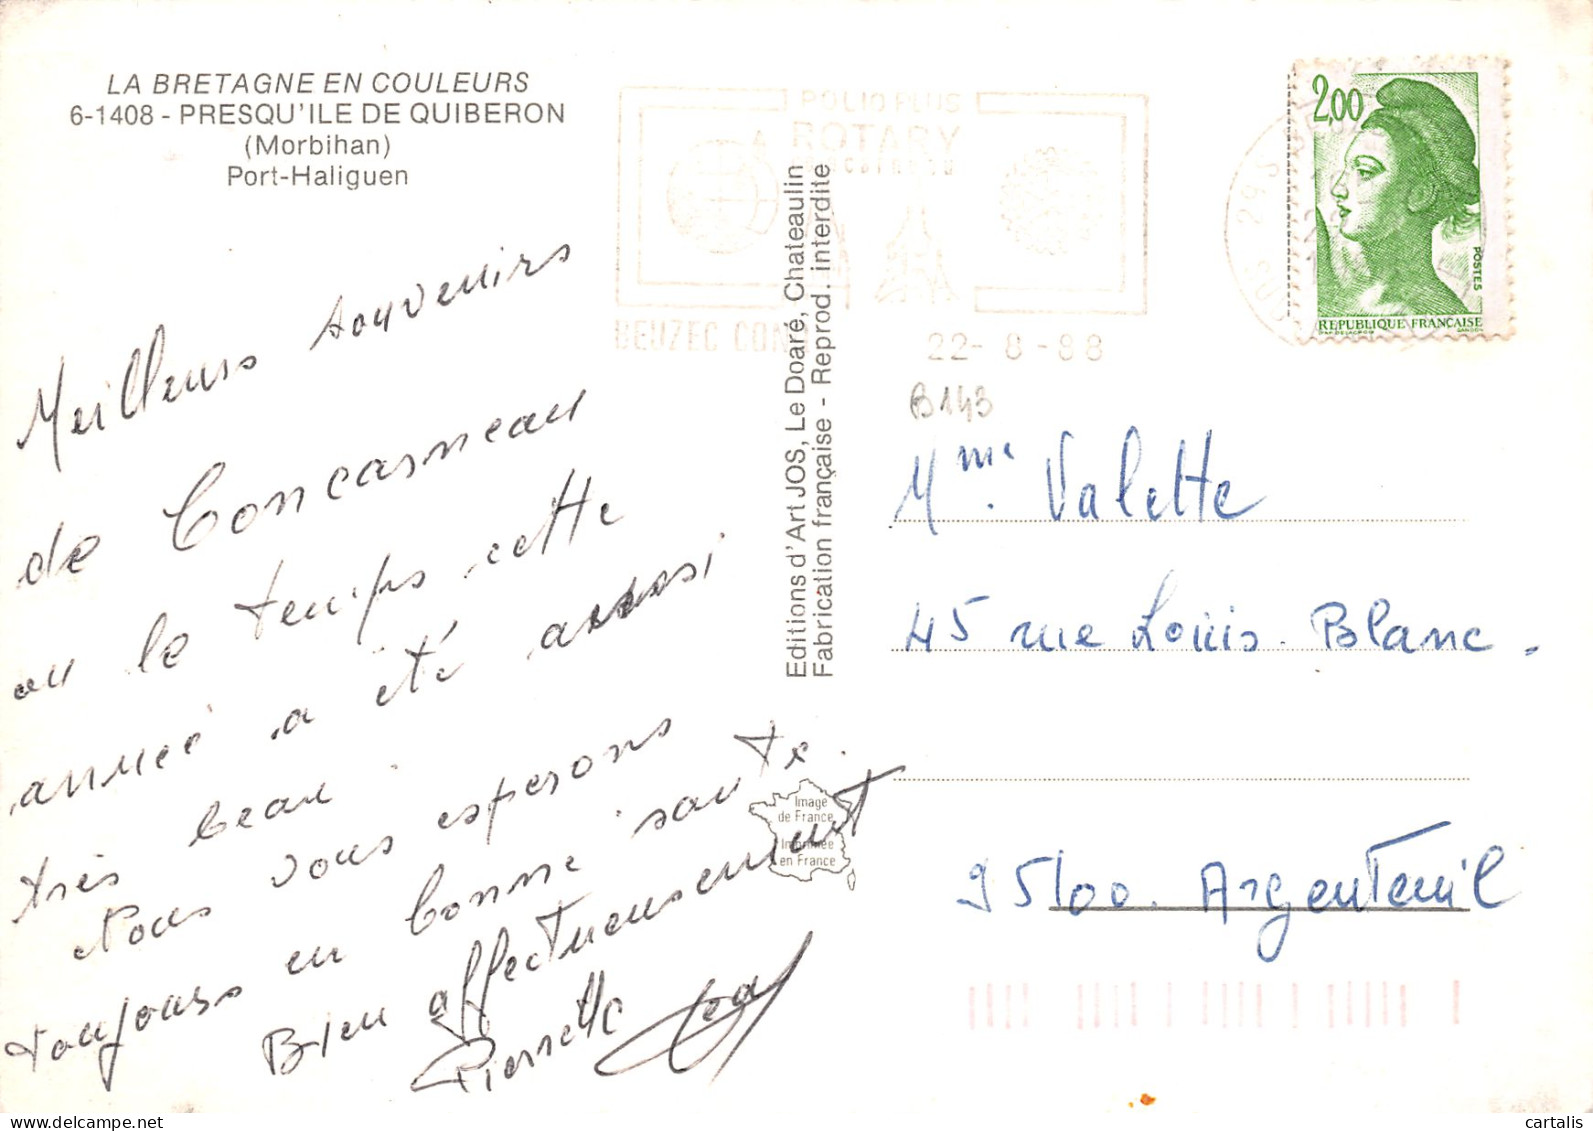 LA BRETAGNE EN COULEURS
6-1408 - PRESQU'ILE DE QUIBERON
(Morbihan)
Port-Haliguen
Meilleurs souvenirs
de Concarneau
ou le temps cette
année a été aussi
très beau.
Nous vous esperons
toujours en bonne sante.
Bien affectueusement
Pierrette
Editions d'Art JOS, Le Doaré, Chateaulin
Fabrication française - Reprod. interdite
Image
de France
Imprimée
en France
POLIO PLUS
ROTARY
BEUZEC CONQ
22- 8 -88
2,00
POSTES
REPUBLIQUE FRANÇAISE
B143
Mme. Valette
45 rue Louis. Blanc.
95100. Argenteuil
cartalis